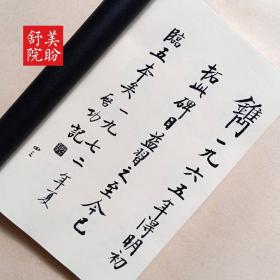 美盼
舒院
鐫
一九六五年得明初
拓此碑日益習之至今已
臨五本矣一九七二年夏
启功記